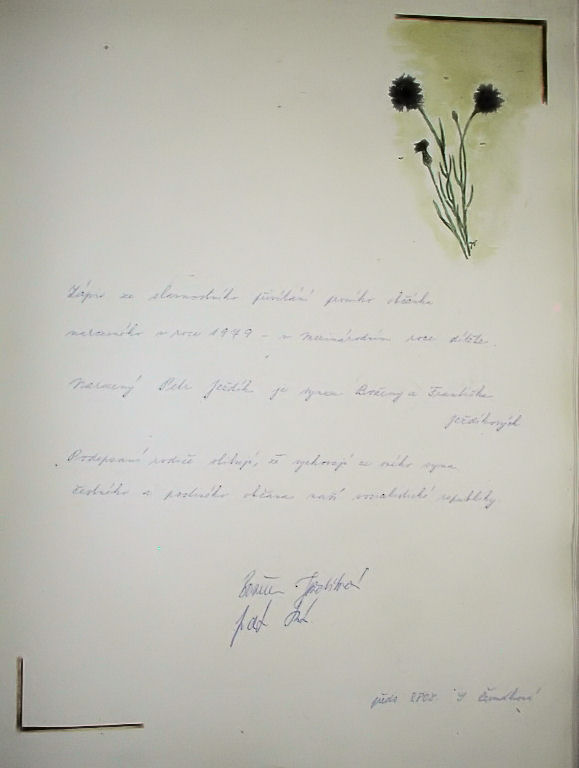 Zápis ze slavnostního přivítání prvního občánka
narozeného v roce 1979 - v Mezinárodním roce dítěte.
Narozený Petr Ježdík je synem Boženy a Františka
Ježdíkových
Podepsaní rodiče slibují, že vychovají ze svého syna
čestného a poctivého občana naší socialistické republiky.
předs. SPOZ